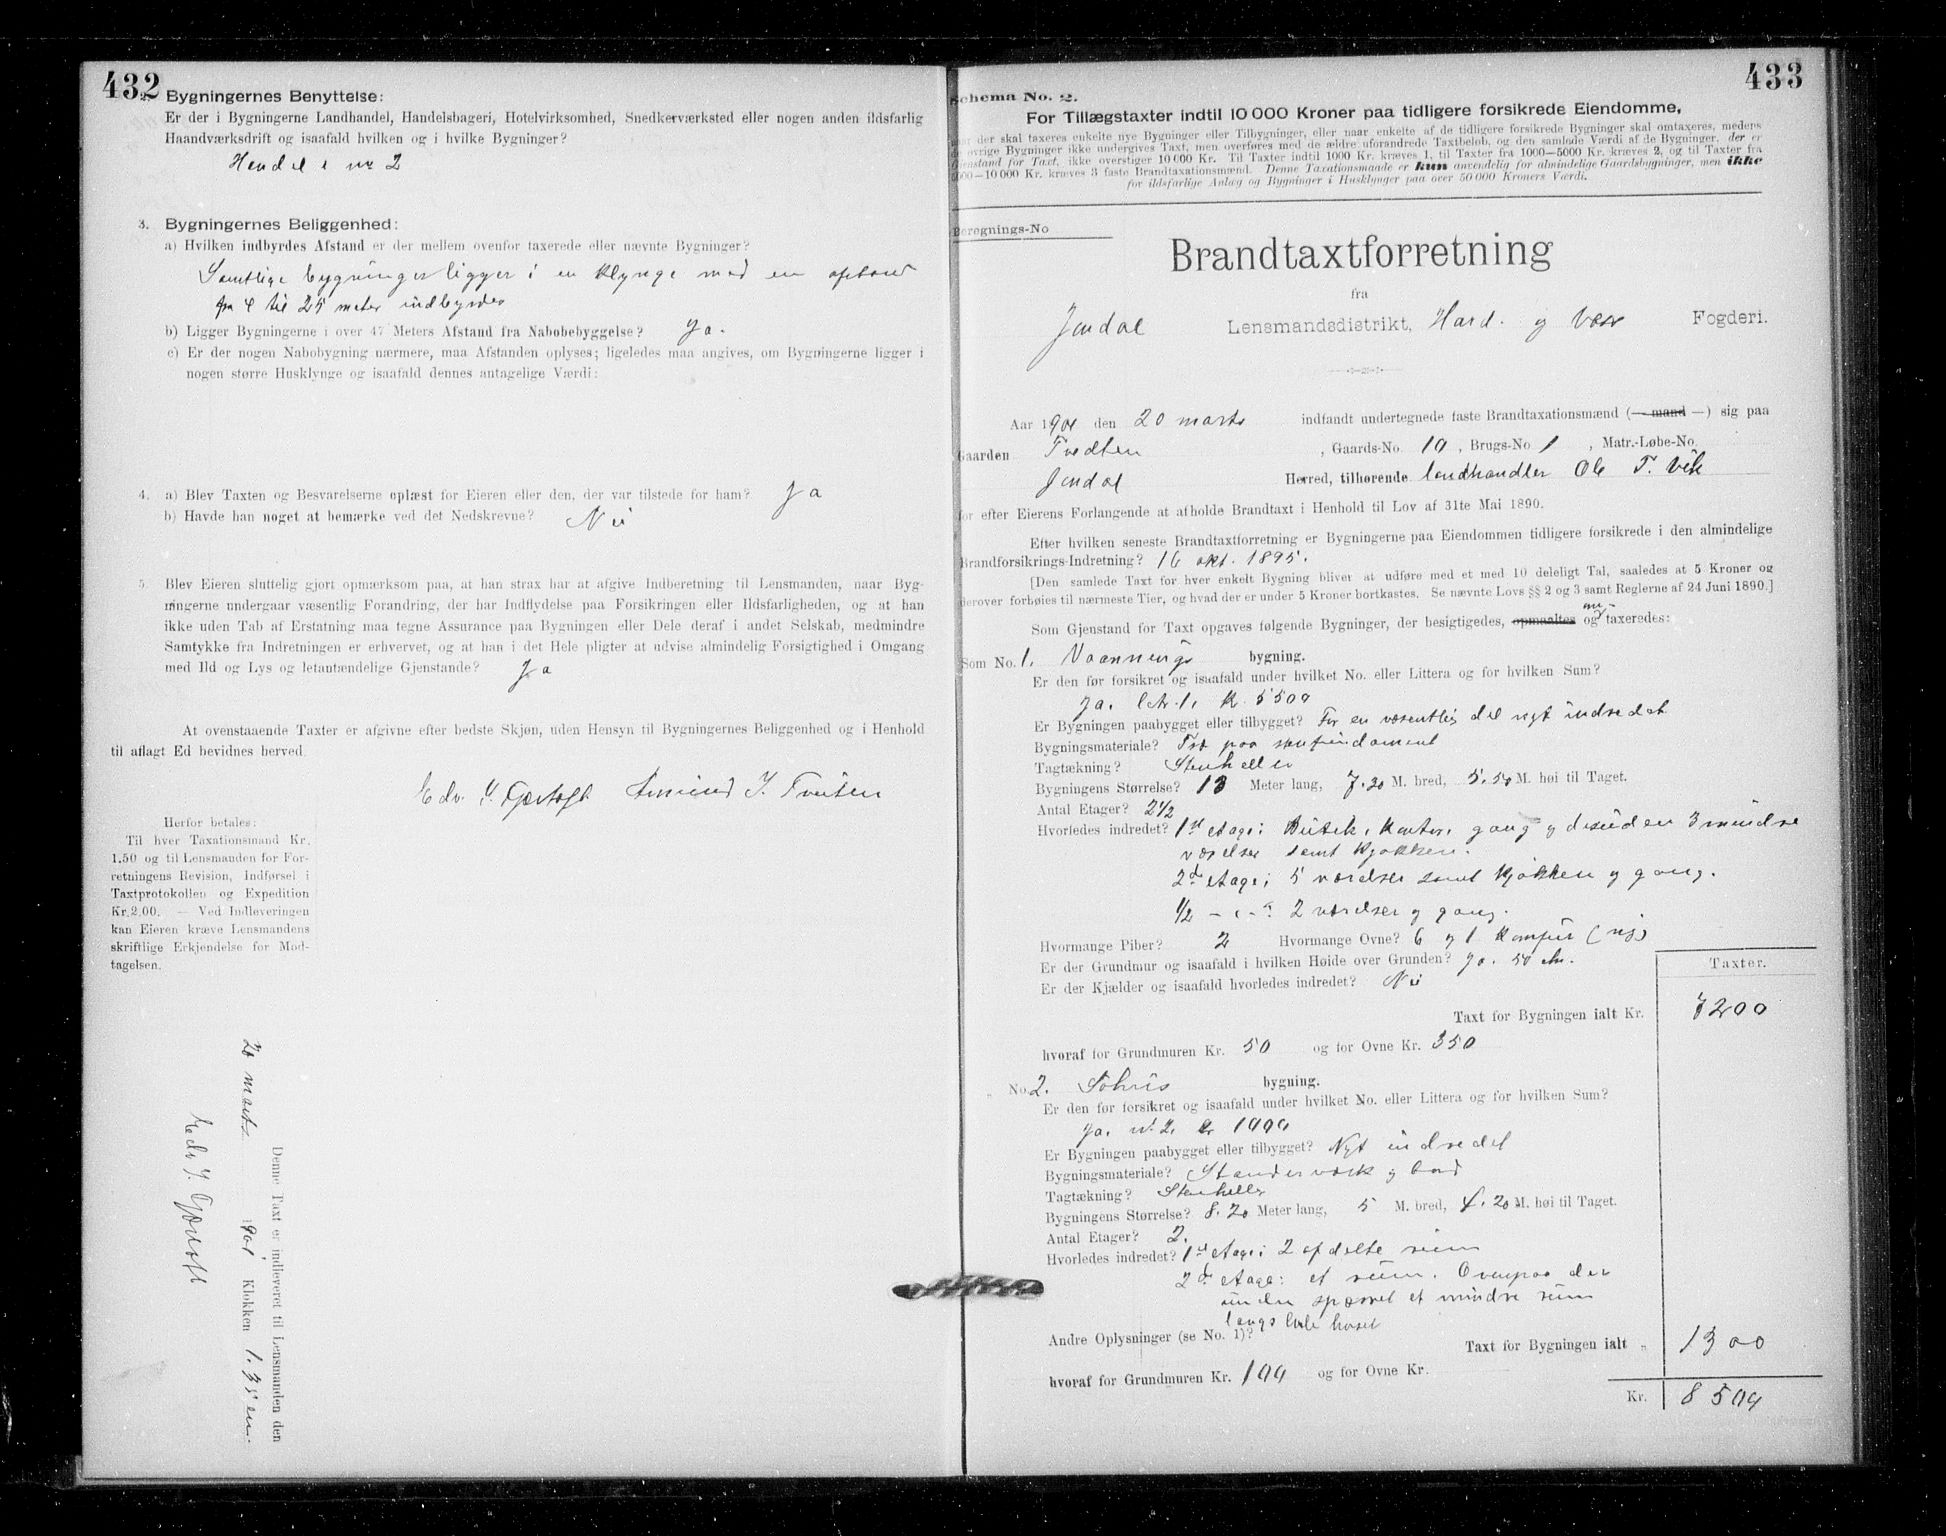 432
2. Bygningernes Benyttelse:
Er der i Bygningerne Landhandel, Handelsbageri, Hotelvirksomhed, Snedkerværksted eller nogen anden ildsfarlig
Haandværksdrift og isaafald hvilken og i hvilke Bygninger?
Handel i nr 2
3. Bygningernes Beliggenhed:
a) Hvilken indbyrdes Afstand er der mellem ovenfor taxerede eller nævnte Bygninger?
Samtlige bygninger ligger i en klynge med en afstand
fra 4 til 25 meter indbyrdes
b) Ligger Bygningerne i over 47 Meters Afstand fra Nabobebyggelse? Ja.
c) Er der nogen Nabobygning nærmere, maa Afstanden oplyses; ligeledes maa angives, om Bygningerne ligger i
nogen større Husklynge og isaafald dennes antagelige Værdi:
4. a) Blev Taxten og Besvarelserne oplæst for Eieren eller den, der var tilstede for ham? Ja
b) Havde han noget at bemærke ved det Nedskrevne? Nei
5. Blev Eieren sluttelig gjort opmærksom paa, at han strax har at afgive Indberetning til Lensmanden, naar Byg-
ningerne undergaar væsentlig Forandring, der har Indflydelse paa Forsikringen eller Ildsfarligheden, og at han
ikke uden Tab af Erstatning maa tegne Assurance paa Bygningen eller Dele deraf i andet Selskab, medmindre
Samtykke fra Indretningen er erhvervet, og at han i det Hele pligter at udvise almindelig Forsigtighed i Omgang
med Ild og Lys og letantændelige Gjenstande? Ja
At ovenstaaende Taxter er afgivne efter bedste Skjøn, uden Hensyn til Bygningernes Beliggenhed og i Henhold
til aflagt Ed bevidnes herved.
Edv. J. Tveiten
Herfor betales:
Til hver Taxationsmand Kr.
1.50 og til Lensmanden for For-
retningens Revision, Indførsel i
Taxtprotokollen og Expedition
Kr. 2.00. — Ved Indleveringen
kan Eieren kræve Lensmandens
skriftlige Erkjendelse for Mod-
tagelsen.
Denne Taxt er indleveret til Lensmanden den
20 marts 1901 Klokken 1.35 em.
Edv. J.
433
Schema No. 2.
For Tillægstaxter indtil 10 000 Kroner paa tidligere forsikrede Eiendomme,
naar der skal taxeres enkelte nye Bygninger eller Tilbygninger, eller naar enkelte af de tidligere forsikrede Bygninger skal omtaxeres, medens
de øvrige Bygninger ikke undergives Taxt, men overføres med de ældre uforandrede Taxtbeløb, og den samlede Værdi af de Bygninger, der er
Gjenstand for Taxt, ikke overstiger 10 000 Kr. Til Taxter indtil 1000 Kr. kræves 1, til Taxter fra 1000—5000 Kr. kræves 2, og til Taxter fra
5000—10 000 Kr. kræves 3 faste Brandtaxationsmænd. Denne Taxationsmaade er kun anvendelig for almindelige Gaardsbygninger, men ikke
for ildsfarlige Anlæg og Bygninger i Husklynger paa over 50 000 Kroners Værdi.
Beregnings-No
Brandtaxtforretning
fra
Jondal Lensmandsdistrikt, Hard. og Voss Fogderi.
Aar 1901 den 20 marts indfandt undertegnede faste Brandtaxationsmænd (— mand —) sig paa
Gaarden Tvedten, Gaards-No. 10, Brugs-No 1, Matr.-Løbe-No.
Jondal Herred, tilhørende landhandler Ole T. Vik
for efter Eierens Forlangende at afholde Brandtaxt i Henhold til Lov af 31te Mai 1890.
Efter hvilken seneste Brandtaxtforretning er Bygningerne paa Eiendommen tidligere forsikrede i den almindelige
Brandforsikrings-Indretning? 16 okt. 1895.
[Den samlede Taxt for hver enkelt Bygning bliver at udføre med et med 10 deleligt Tal, saaledes at 5 Kroner og
derover forhøies til nærmeste Tier, og hvad der er under 5 Kroner bortkastes. Se nævnte Lovs §§ 2 og 3 samt Reglerne af 24 Juni 1890.]
Som Gjenstand for Taxt opgaves følgende Bygninger, der besigtigedes, opmaaltes og om-taxeredes:
Som No. 1. Vaannings bygning.
Er den før forsikret og isaafald under hvilket No. eller Littera og for hvilken Sum?
Ja. litr. 1. kr. 5500
Er Bygningen paabygget eller tilbygget? For en væsentlig del nyt indredet
Bygningsmateriale? Træ paa stenfundament
Tagtækning? Stenheller
Bygningens Størrelse? 13 Meter lang, 7.30 M. bred, 5.50 M. høi til Taget.
Antal Etager? 2½
Hvorledes indredet? 1st etage: Butik, kontor, gang og desuden 3 mindre
værelser samt kjøkken.
2d etage: 5 værelser samt kjøkken og gang.
½ — " — 2 værelser og gang.
Hvormange Piber? 2 Hvormange Ovne? 6 og 1 komfur (ny)
Er der Grundmur og isaafald i hvilken Høide over Grunden? Ja. 50 ctm.
Er der Kjælder og isaafald hvorledes indredet? Nei
Taxter.
Taxt for Bygningen ialt Kr. 7200
hvoraf for Grundmuren Kr. 50 og for Ovne Kr. 350
" No. 2. bygning.
Er den før forsikret og isaafald under hvilket No. eller Littera og for hvilken Sum?
Ja. nr. 2. kr 1000
Er Bygningen paabygget eller tilbygget? Nyt indredet
Bygningsmateriale? Standerværk og bord
Tagtækning? Stenheller
Bygningens Størrelse? 8.20 Meter lang, 5 M. bred, 4.20 M. høi til Taget.
Antal Etager? 2.
Hvorledes indredet? 1st etage: 2 afdelte rum
2d etage: et rum. Ovenpaa der
under spærret et mindre rum
langs hele huset
Andre Oplysninger (se No. 1)?
Taxt for Bygningen ialt " 1300
hvoraf for Grundmuren Kr. 100 og for Ovne Kr.
Kr. 8500